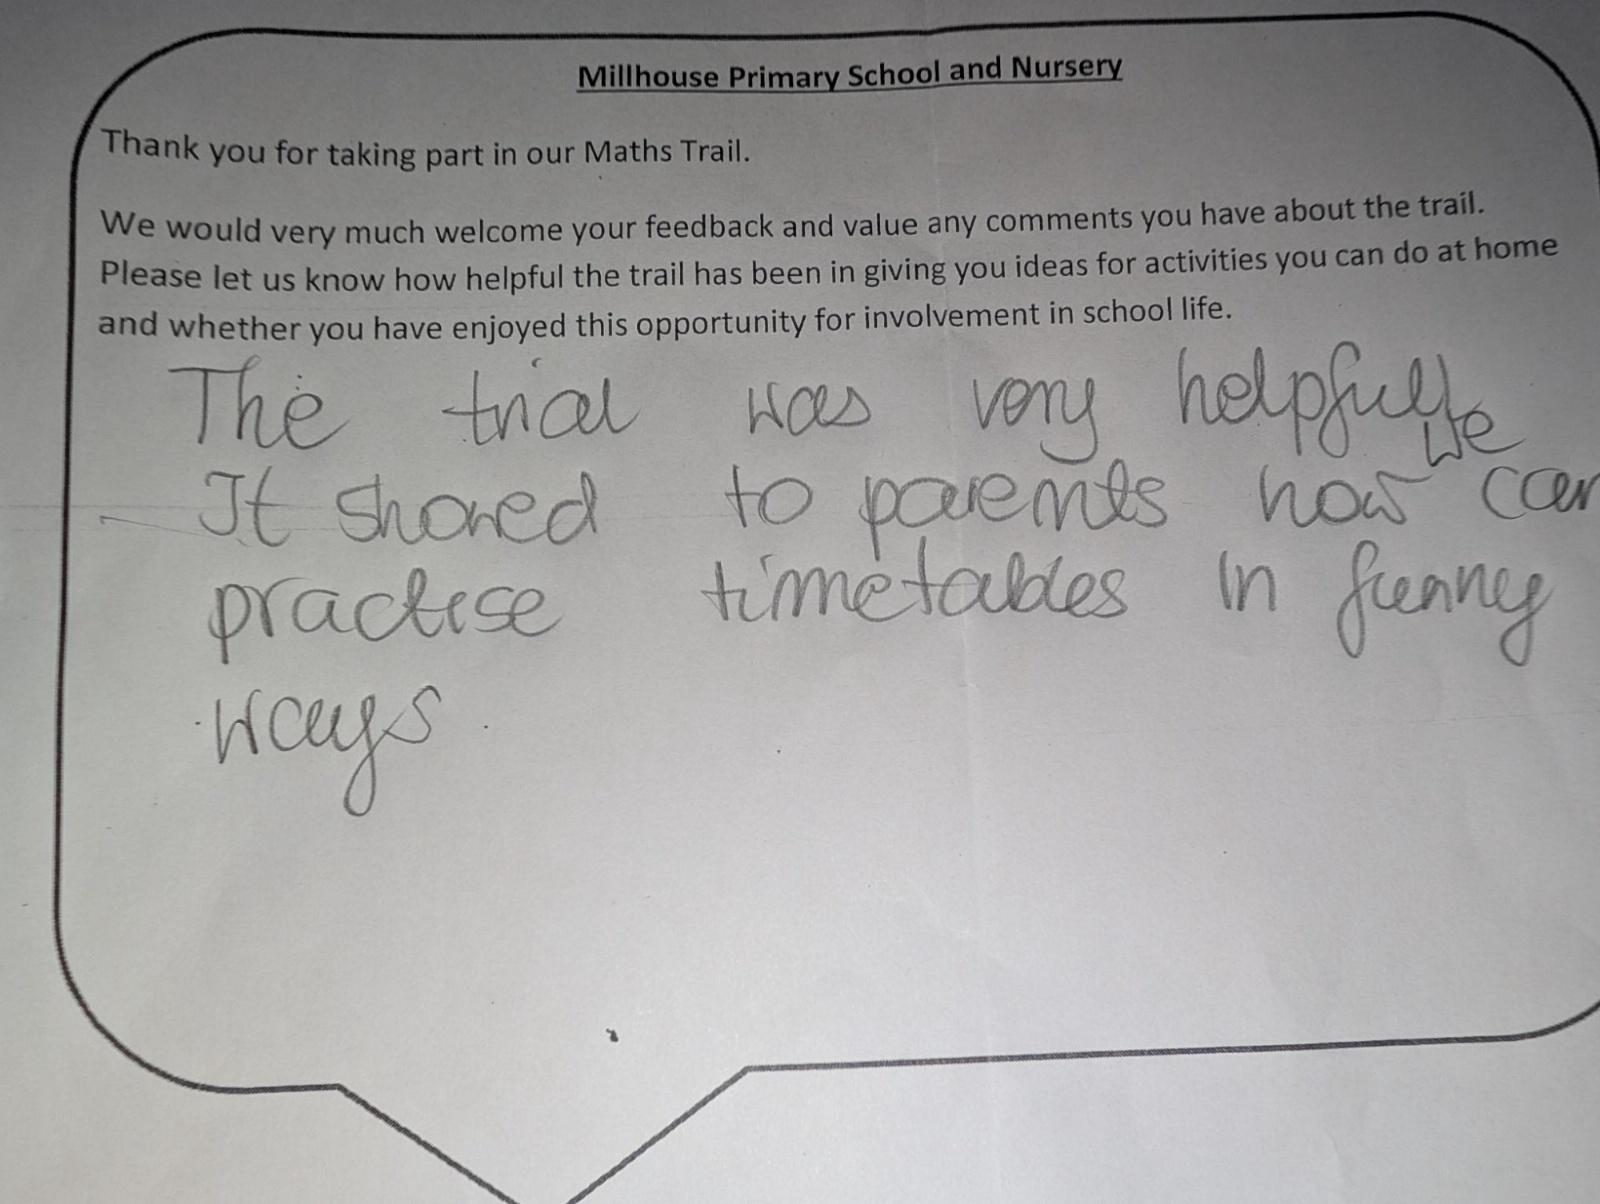 Millhouse Primary School and Nursery
Thank you for taking part in our Maths Trail.
We would very much welcome your feedback and value any comments you have about the trail.
Please let us know how helpful the trail has been in giving you ideas for activities you can do at home
and whether you have enjoyed this opportunity for involvement in school life.
The trial was very helpfull
It showed to parents how we can
practise timetables in funny
ways.